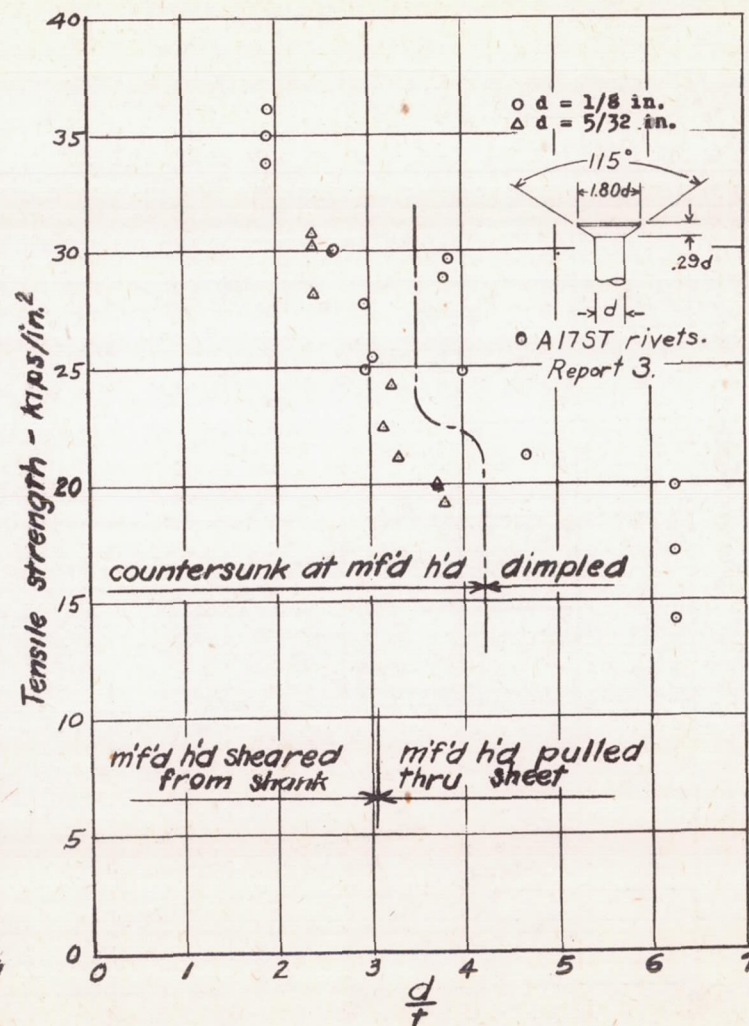 40
35
30
25
20
15
10
5
0
Tensile strength - kips/in.²
o d = 1/8 in.
△ d = 5/32 in.
115°
1.80d
.29d
d
A17ST rivets.
Report 3.
countersunk at m'f'd h'd
dimpled
m'f'd h'd sheared
from shank
m'f'd h'd pulled
thru sheet
0 1 2 3 4 5 6 7
d
t